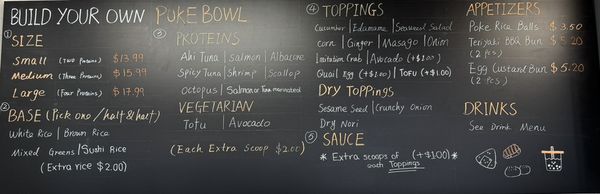 BUILD YOUR OWN POKE BOWL
① SIZE
Small (Two Proteins) $13.99
Medium (Three Proteins) $15.99
Large (Four Proteins) $17.99
② BASE (Pick one / half & half)
White Rice | Brown Rice
Mixed Greens | Sushi Rice
(Extra rice $2.00)
③ PROTEINS
Ahi Tuna | Salmon | Albacore
Spicy Tuna | Shrimp | Scallop
Octopus | Salmon or Tuna marinated
VEGETARIAN
Tofu | Avocado
(Each Extra Scoop $2.00)
④ TOPPINGS
Cucumber | Edamame | Seaweed Salad
Corn | Ginger | Masago | Onion
Imitation Crab | Avocado (+$1.00)
Quail Egg (+$1.00) | TOFU (+$1.00)
DRY TOPPINGS
Sesame Seed | Crunchy Onion
Dry Nori
⑤ SAUCE
* Extra scoops of each Toppings (+$1.00) *
APPETIZERS
Poke Rice Balls $3.50
Teriyaki BBQ Bun $5.20
(2 pcs)
Egg Custard Bun $5.20
(2 pcs)
DRINKS
See Drink Menu